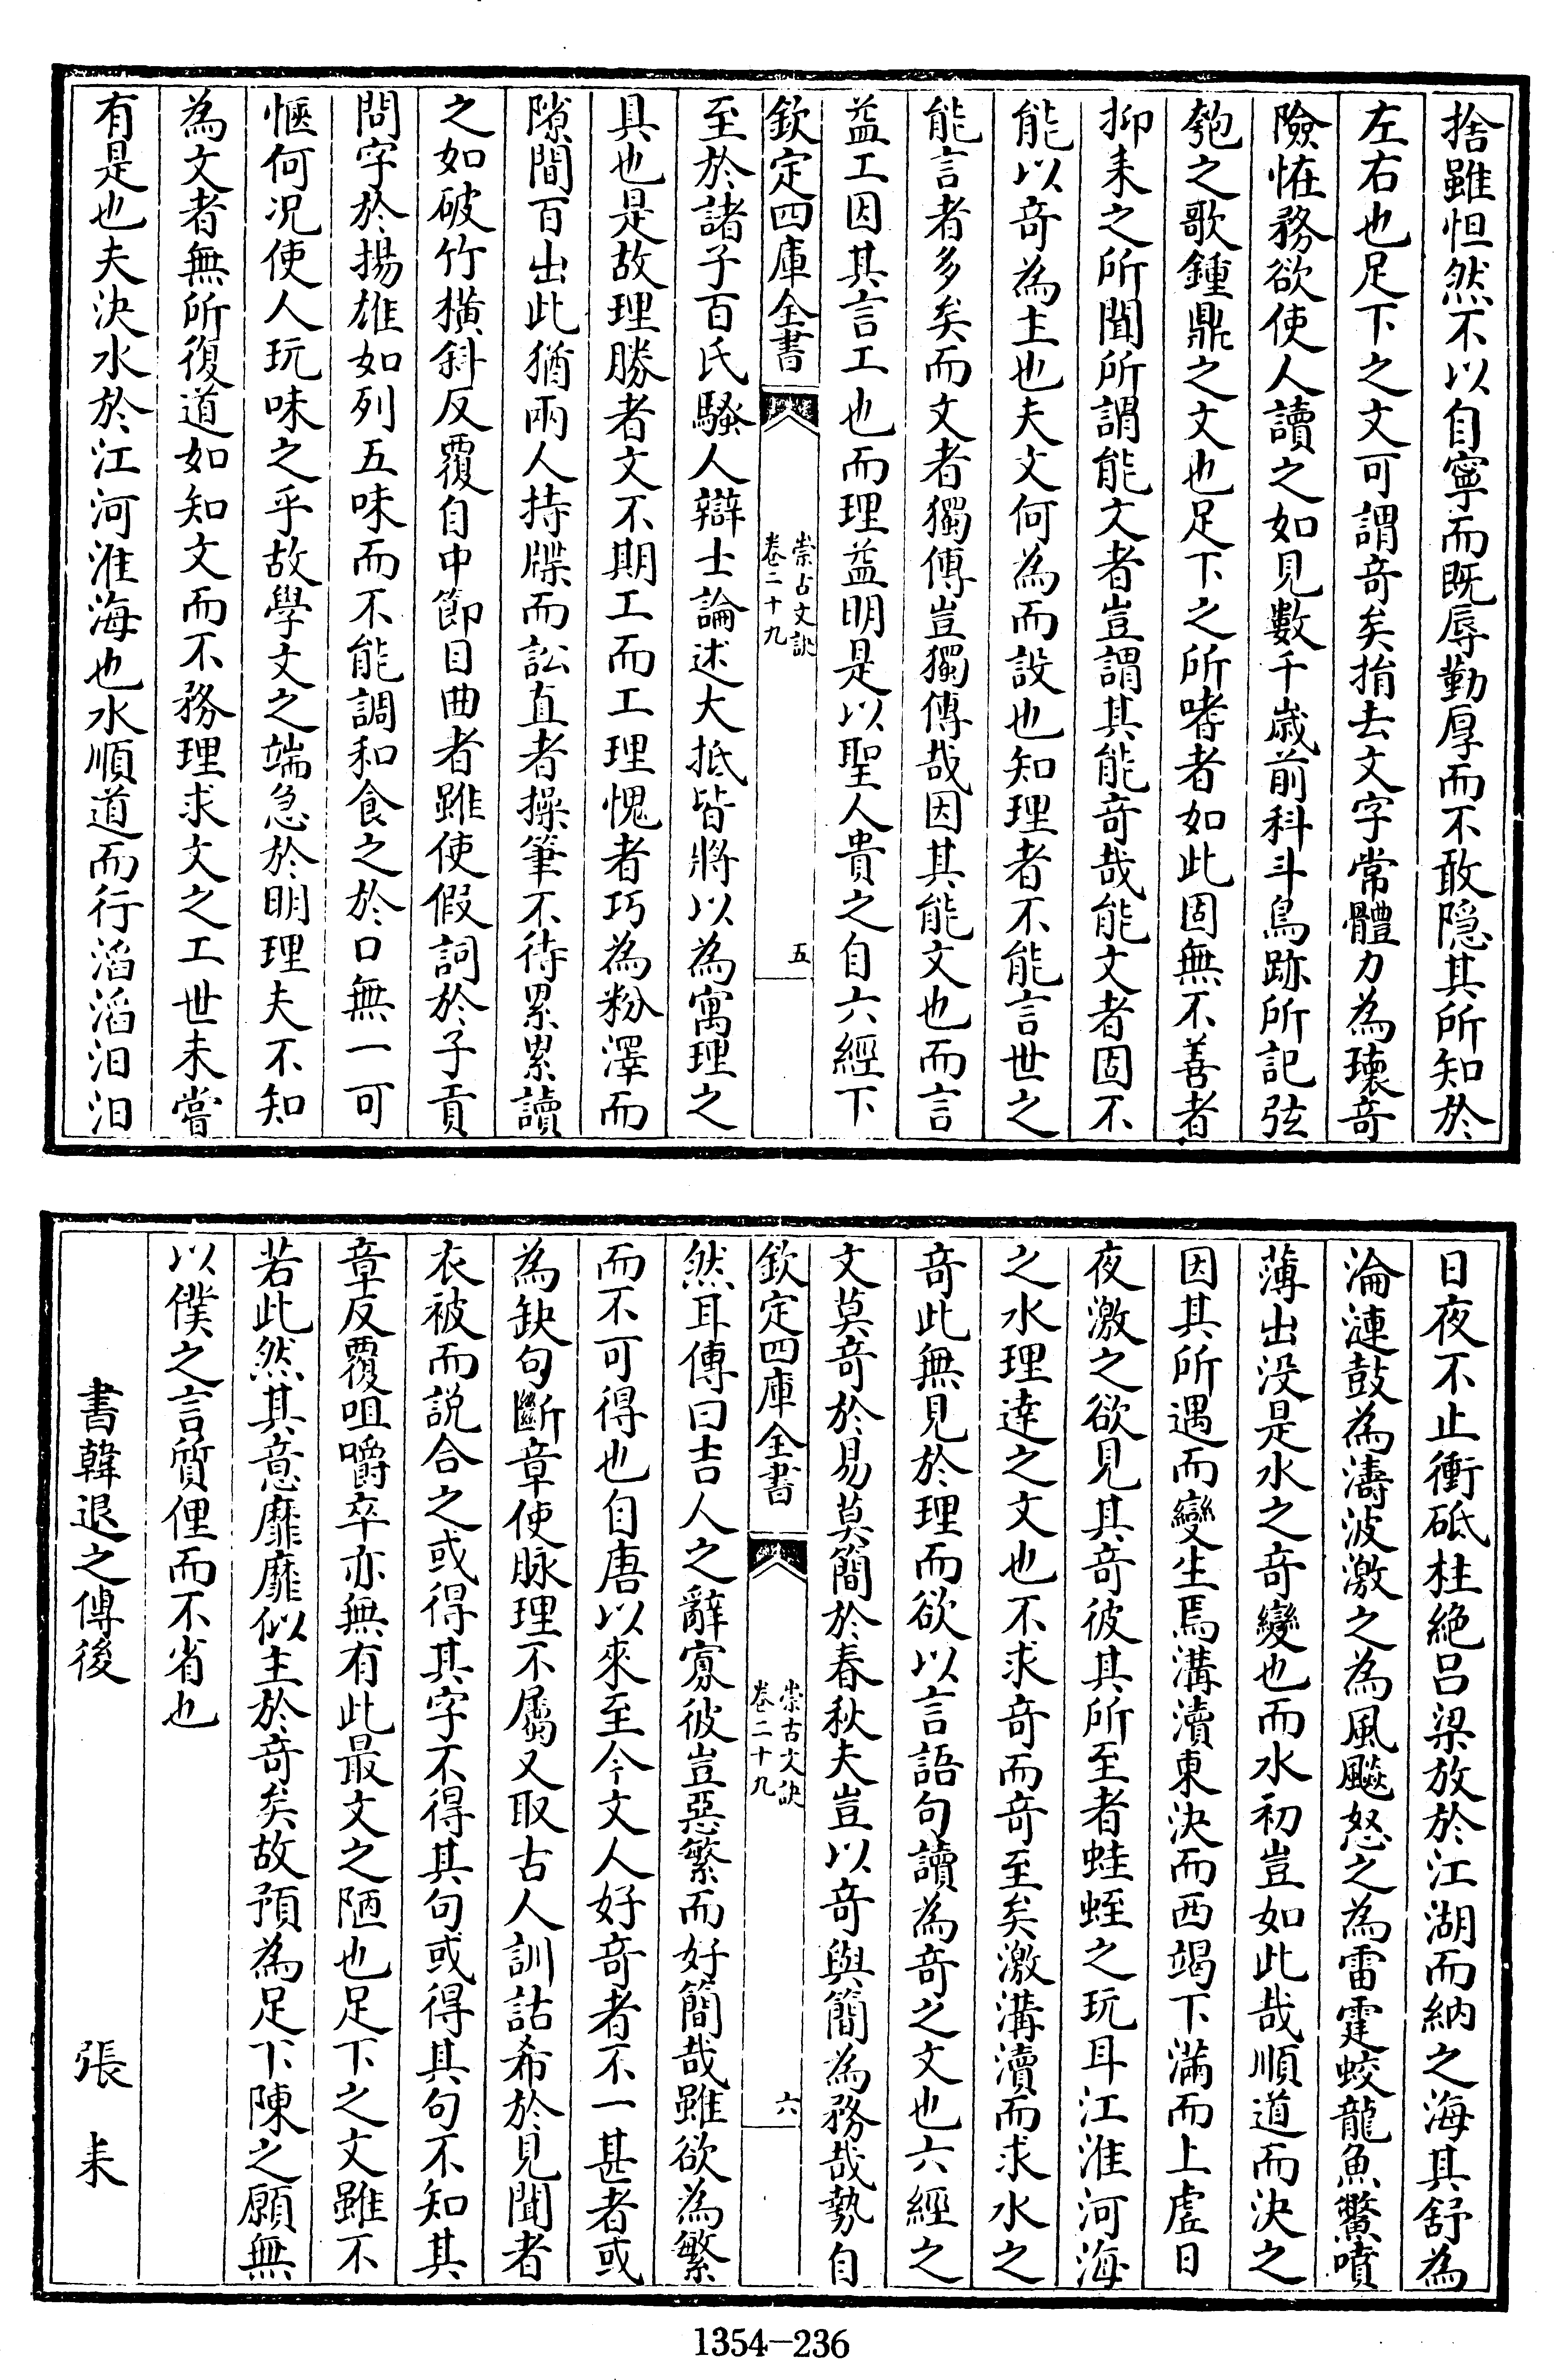 捨雖怛然不以自寧而既辱勤厚而不敢隱其所知於
左右也足下之文可謂竒矣捐去文字常體力為瓌竒
險怪務欲使人讀之如見數千歳前科斗鳥跡所記弦
匏之歌鍾鼎之文也足下之所嗜者如此固無不善者
抑耒之所聞所謂能文者豈謂其能竒哉能文者固不
能以竒為主也夫文何為而設也知理者不能言世之
能言者多矣而文者獨傳豈獨傳哉因其能文也而言
益工因其言工也而理益明是以聖人貴之自六經下
欽定四庫全書
崇古文訣
卷二十九
五
至於諸子百氏騷人辯士論述大抵皆將以為寓理之
具也是故理勝者文不期工而工理愧者巧為粉澤而
隙間百出此猶兩人持牒而訟直者操筆不待累累讀
之如破竹橫斜反覆自中節目曲者雖使假詞於子貢
問字於揚雄如列五味而不能調和食之於口無一可
愜何况使人玩味之乎故學文之端急於明理夫不知
為文者無所復道如知文而不務理求文之工世未嘗
有是也夫決水於江河淮海也水順道而行滔滔汨汨
日夜不止衝砥柱絶吕梁放於江湖而納之海其舒為
淪漣鼓為濤波激之為風飈怒之為雷霆蛟龍魚鱉噴
薄出没是水之竒變也而水初豈如此哉順道而決之
因其所遇而變生焉溝瀆東決而西竭下滿而上虛日
夜激之欲見其竒彼其所至者蛙蛭之玩耳江淮河海
之水理逹之文也不求竒而竒至矣激溝瀆而求水之
竒此無見於理而欲以言語句讀為竒之文也六經之
文莫竒於易莫簡於春秋夫豈以竒與簡為務哉勢自
欽定四庫全書
崇古文訣
卷二十九
六
然耳傳曰吉人之辭寡彼豈惡繁而好簡哉雖欲為繁
而不可得也自唐以來至今文人好竒者不一甚者或
為缺句斷章使脉理不屬又取古人訓詁希於見聞者
衣被而説合之或得其字不得其句或得其句不知其
章反覆咀嚼卒亦無有此最文之陋也足下之文雖不
若此然其意靡靡似主於竒矣故預為足下陳之願無
以僕之言質俚而不省也
書韓退之傳後 張耒
1354-236